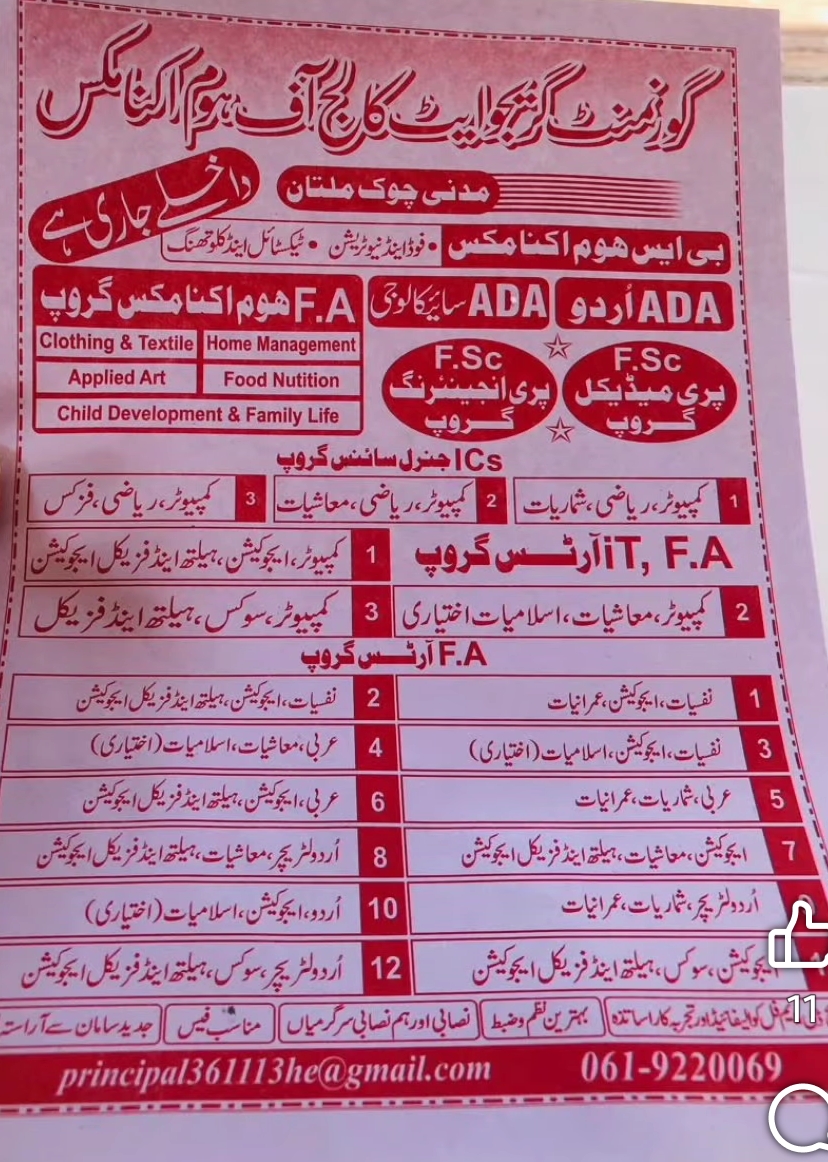 گورنمنٹ گریجوایٹ کالج آف ہوم اکنامکس
مدنی چوک ملتان
داخلے جاری ہے
بی ایس ہوم اکنامکس • فوڈ اینڈ نیوٹریشن • ٹیکسٹائل اینڈ کلوتھنگ
ADA اُردو
ADA سائیکالوجی
F.A ہوم اکنامکس گروپ
Clothing & Textile Home Management
Applied Art Food Nutition
Child Development & Family Life
F.Sc
پری میڈیکل
گروپ
F.Sc
پری انجینئرنگ
گروپ
ICs جنرل سائنس گروپ
1 کمپیوٹر، ریاضی، شماریات
2 کمپیوٹر، ریاضی، معاشیات
3 کمپیوٹر، ریاضی، فزکس
iT, F.A آرٹس گروپ
1 کمپیوٹر، ایجوکیشن، ہیلتھ اینڈ فزیکل ایجوکیشن
2 کمپیوٹر، معاشیات، اسلامیات اختیاری
3 کمپیوٹر، سوکس، ہیلتھ اینڈ فزیکل
F.A آرٹس گروپ
1 نفسیات، ایجوکیشن، عمرانیات
2 نفسیات، ایجوکیشن، ہیلتھ اینڈ فزیکل ایجوکیشن
3 نفسیات، ایجوکیشن، اسلامیات (اختیاری)
4 عربی، معاشیات، اسلامیات (اختیاری)
5 عربی، شماریات، عمرانیات
6 عربی، ایجوکیشن، ہیلتھ اینڈ فزیکل ایجوکیشن
7 ایجوکیشن، معاشیات، ہیلتھ اینڈ فزیکل ایجوکیشن
8 اُردو لٹریچر، معاشیات، ہیلتھ اینڈ فزیکل ایجوکیشن
اُردو لٹریچر، شماریات، عمرانیات
10 اُردو، ایجوکیشن، اسلامیات (اختیاری)
ایجوکیشن، سوکس، ہیلتھ اینڈ فزیکل ایجوکیشن
12 اُردو لٹریچر، سوکس، ہیلتھ اینڈ فزیکل ایجوکیشن
فل کوالیفائیڈ اور تجربہ کار اساتذہ
بہترین نظم و ضبط
نصابی اور ہم نصابی سرگرمیاں
مناسب فیس
جدید سامان سے آراستہ
principal361113he@gmail.com 061-9220069
11